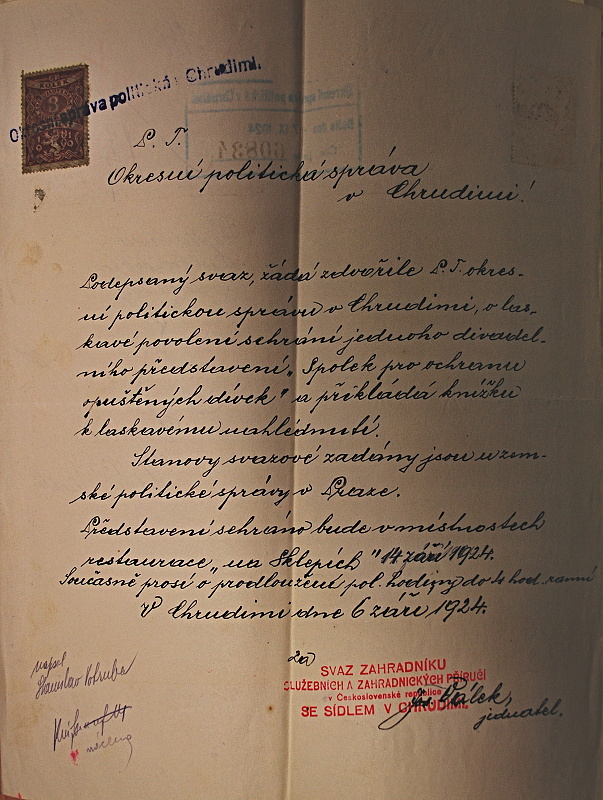 KOLEK
3
Okresní správa politická v Chrudimi.
P. T.
Okresní politická správa
v Chrudimi!
Podepsaný svaz, žádá zdvořile P. T. okres-
ní politickou správu v Chrudimi, o las-
kavé povolení sehrání jednoho divadel-
ního představení „Spolek pro ochranu
opuštěných dívek" a přikládá knížku
k laskavému nahlédnutí.
Stanovy svazové zadány jsou u zem-
ské politické správy v Praze.
Představení sehráno bude v místnostech
restaurace „na Sklepích" 14 září 1924.
Současně prosí o prodloužení pol. hodiny do 4 hod. ranní
V Chrudimi dne 6 září 1924.
za
SVAZ ZAHRADNÍKU
SLUŽEBNÍCH A ZAHRADNICKÝCH PŘÍRUČÍ
v Československé republice
SE SÍDLEM V CHRUDIMI.
Jos. Válek,
jednatel.
napsal
Stanislav